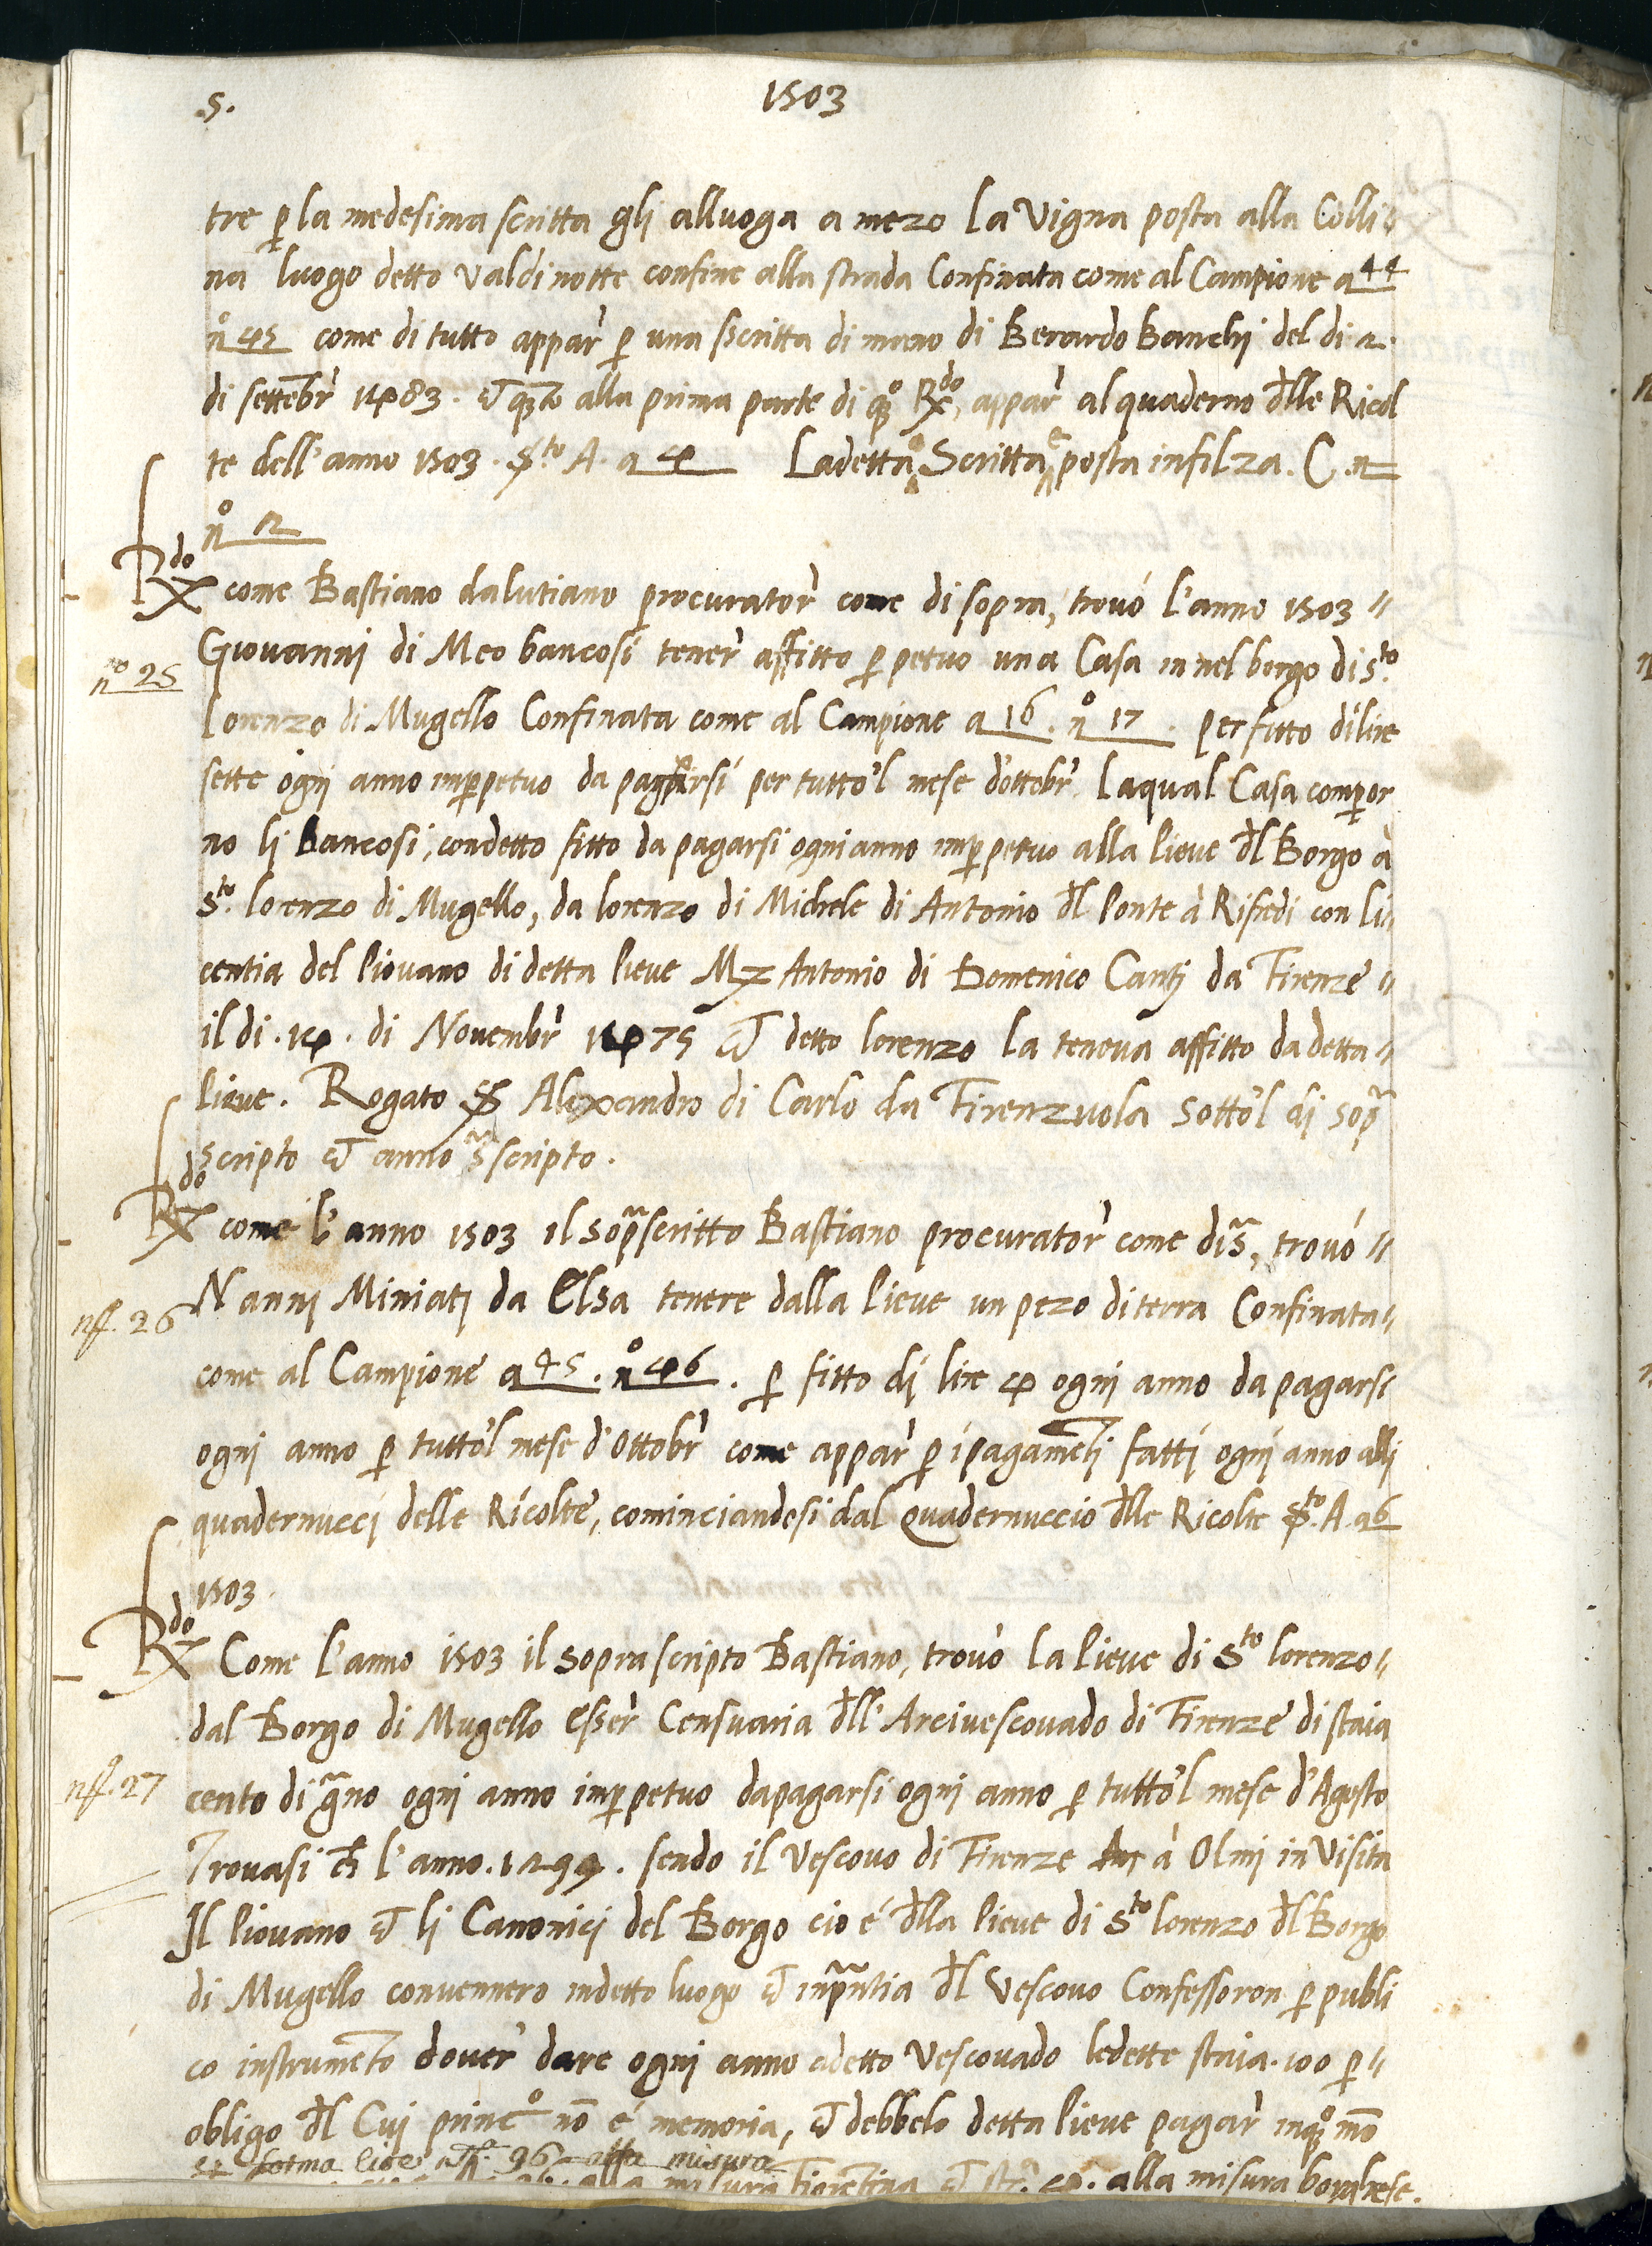 5.
1503
tre p la medesima scritta gli alluoga a mezo la Vigna posta alla Colli-
na luogo detto Valdinotte confine alla strada Confinata come al Campione a 44
nº 45 come di tutto appar p una scritta di mano di Berardo Banchi del di 2.
di settebr 1483. et qto alla prima parte di qº Rdo, appar al quaderno dlle Ricol
te dell'anno 1503. sto A. a 4 La detta Scritta è posta infilza. C. n
nº 12
Rdo come Bastiano dalutiano procurator come di sopra, trovó l'anno 1503 //
Giovanni di Meo bancosi tener affitto p petuo una Casa in nel borgo di Sto
nº 25
Lorenzo di Mugello Confinata come al Campione a 16. nº 17. per fitto di lire
sette ogni anno inppetuo da pagarsi per tutto'l mese d'ottobr. Laqual Casa compor
no li Bancosi, con detto fitto da pagarsi ogni anno inppetuo alla Pieve dl Borgo à
Sto lorenzo di Mugello, da lorenzo di Michele di Antonio dl Ponte à Rifredi con li-
centia del Piovano di detta Pieve Mz Antonio di Domenico Canti da Firenze //
il di. 14. di Novembr 1475 et detto lorenzo la teneva affitto da detta //
Pieve. Rogato Alexandro di Carlo da Firenzuola sotto'l di sop
scripto et anno sscripto.
Rdo come l'anno 1503 il sopscritto Bastiano procurator come dis, trovó //
Nanni Miniati da Elsa tenere dalla Pieve un pezo di terra Confinata //
nº. 26
come al Campione a 45. nº 46. p fitto di lire 4 ogni anno da pagarsi
ogni anno p tutto'l mese d'Ottobr come appar p i pagameti fatti ogni anno alli
quadernucci delle Ricolte, cominciandosi dal Quadernuccio dlle Ricolte sto. A. a 6
1503.
Rdo Come l'anno 1503 il soprascripto Bastiano, trovò la Pieve di Sto lorenzo //
dal Borgo di Mugello esser Censuaria dll' Arcivescovado di Firenze di staia
nº. 27
cento di gno ogni anno inppetuo dapagarsi ogni anno p tutto'l mese d'Agosto
Trovasi ch l'anno. 1299. sendo il Vescovo di Firenze à Olmi in Visita
Il Piovano et li Canonici del Borgo cio é dlla Pieve di Sto lorenzo dl Borgo
di Mugello convennero indetto luogo et inpntia dl Vescovo Confessoron p publi
co instrumeto dover dare ogni anno adetto Vescovado ledette staia. 100 p //
obligo dl Cui princº no é memoria, et debbelo detta Pieve pagar inqº mo
forma 96 alla misura
alla misura Fiorentina et st. 4. alla misura borghese.